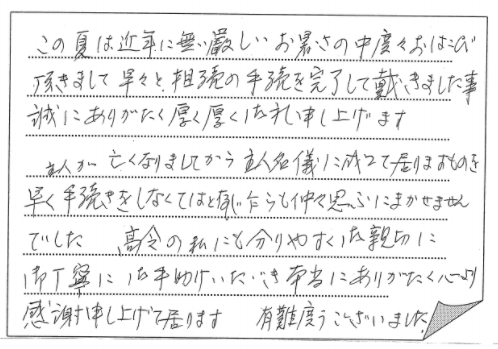 この夏は近年に無い厳しいお暑さの中度々おはこび
頂きまして早々と相続の手続を完了して戴きました事
誠にありがたく厚く厚く御礼申し上げます
主人が亡くなりましてから主人名儀に成って居りますものを
早く手続きをしなくてはと感じ乍らも仲々思ふにまかせません
でした 高令の私にも分りやすく御親切に
御丁寧に御手助けいただき本当にありがたく心より
感謝申し上げて居ります 有難度うございました